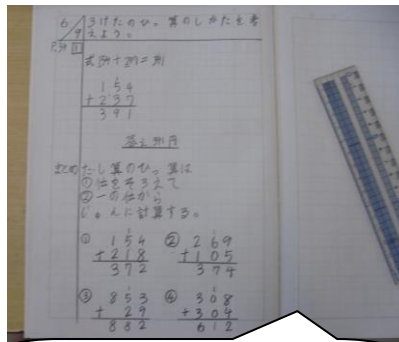 6/9 3けたのひっ算のしかたを考
えよう。
P.34 1
式154+237=391
154
+237
391
答え391円
まとめ たし算のひっ算は
①位をそろえて
②一の位から
じゅんに計算する。
① 154 ② 269
+218 +105
372 374
③ 853 ④ 308
+ 29 +304
882 612